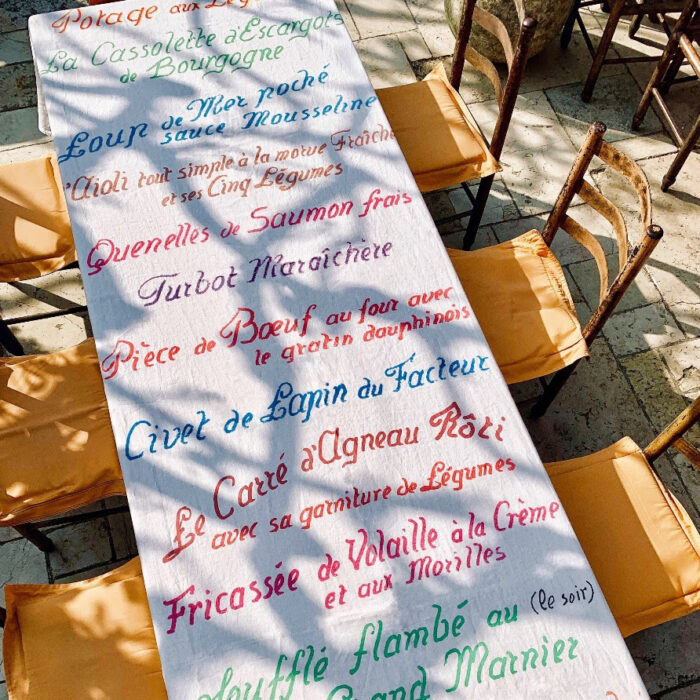 Potage aux
La Cassolette d'Escargots
de Bourgogne
Loup de Mer poché
sauce Mousseline
L'Aïoli tout simple à la morue Fraîche
et ses Cinq Légumes
Quenelles de Saumon frais
Turbot Maraîchère
Pièce de Bœuf au four avec
le gratin dauphinois
Civet de Lapin du Facteur
Le Carré d'Agneau Rôti
avec sa garniture de Légumes
Fricassée de Volaille à la Crème
et aux Morilles
Soufflé flambé au (le soir)
Grand Marnier